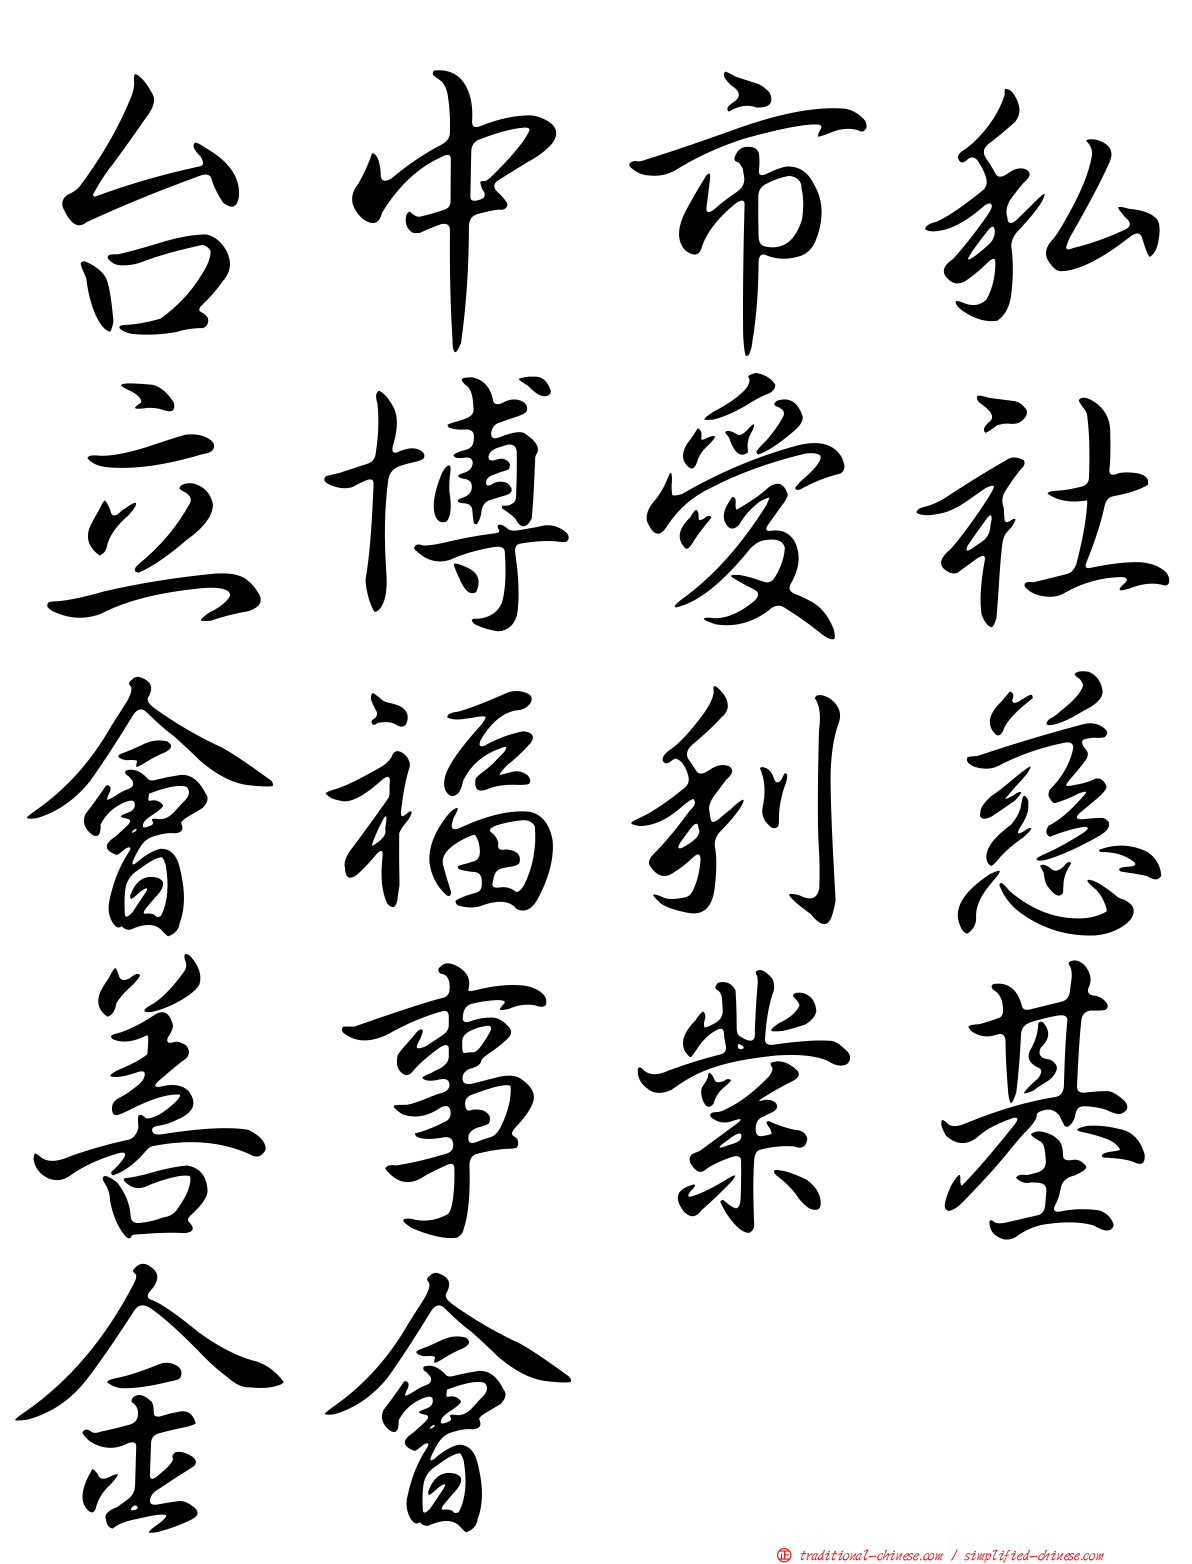 台中市私
立博愛社
會福利慈
善事業基
金會
㊣ traditional-chinese.com / simplified-chinese.com